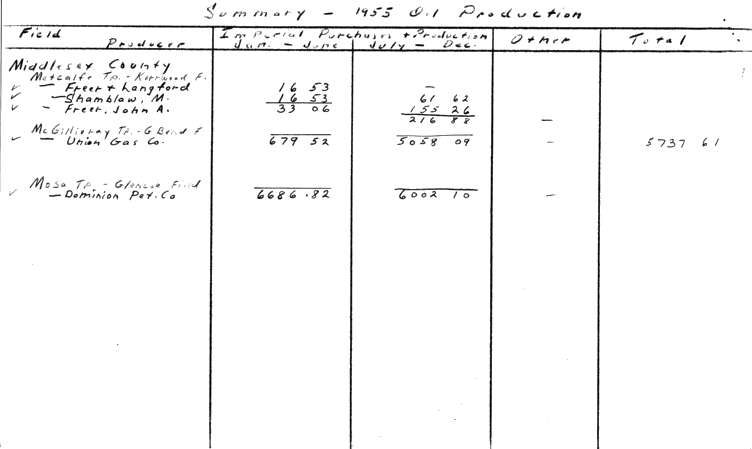 Summary - 1955 Oil Production
Field Imperial Purchases + Production Other Total
Producer Jan. - June July - Dec.
Middlesex County
Metcalfe Tp. - F.
✓ - Freer + Langford 16 53 -
✓ - Shamblaw, M. 16 53 61 62
✓ - Freer, John A. 33 06 155 26
216 88 -
McGillivray Tp. - G Bend F
✓ - Union Gas Co. 679 52 5058 09 - 5737 61
Mosa Tp. - Glencoe Field
✓ - Dominion Pet. Co 6686.82 6002 10 -